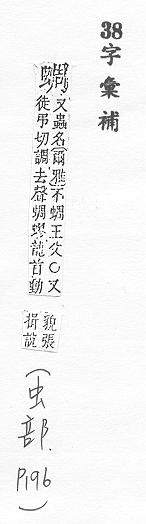 38字彙補
蜩又蟲名爾雅不蜩王父○又
徒弔切調去聲蜩蟉龍首動
貌張
揖說
(虫部.
P196)